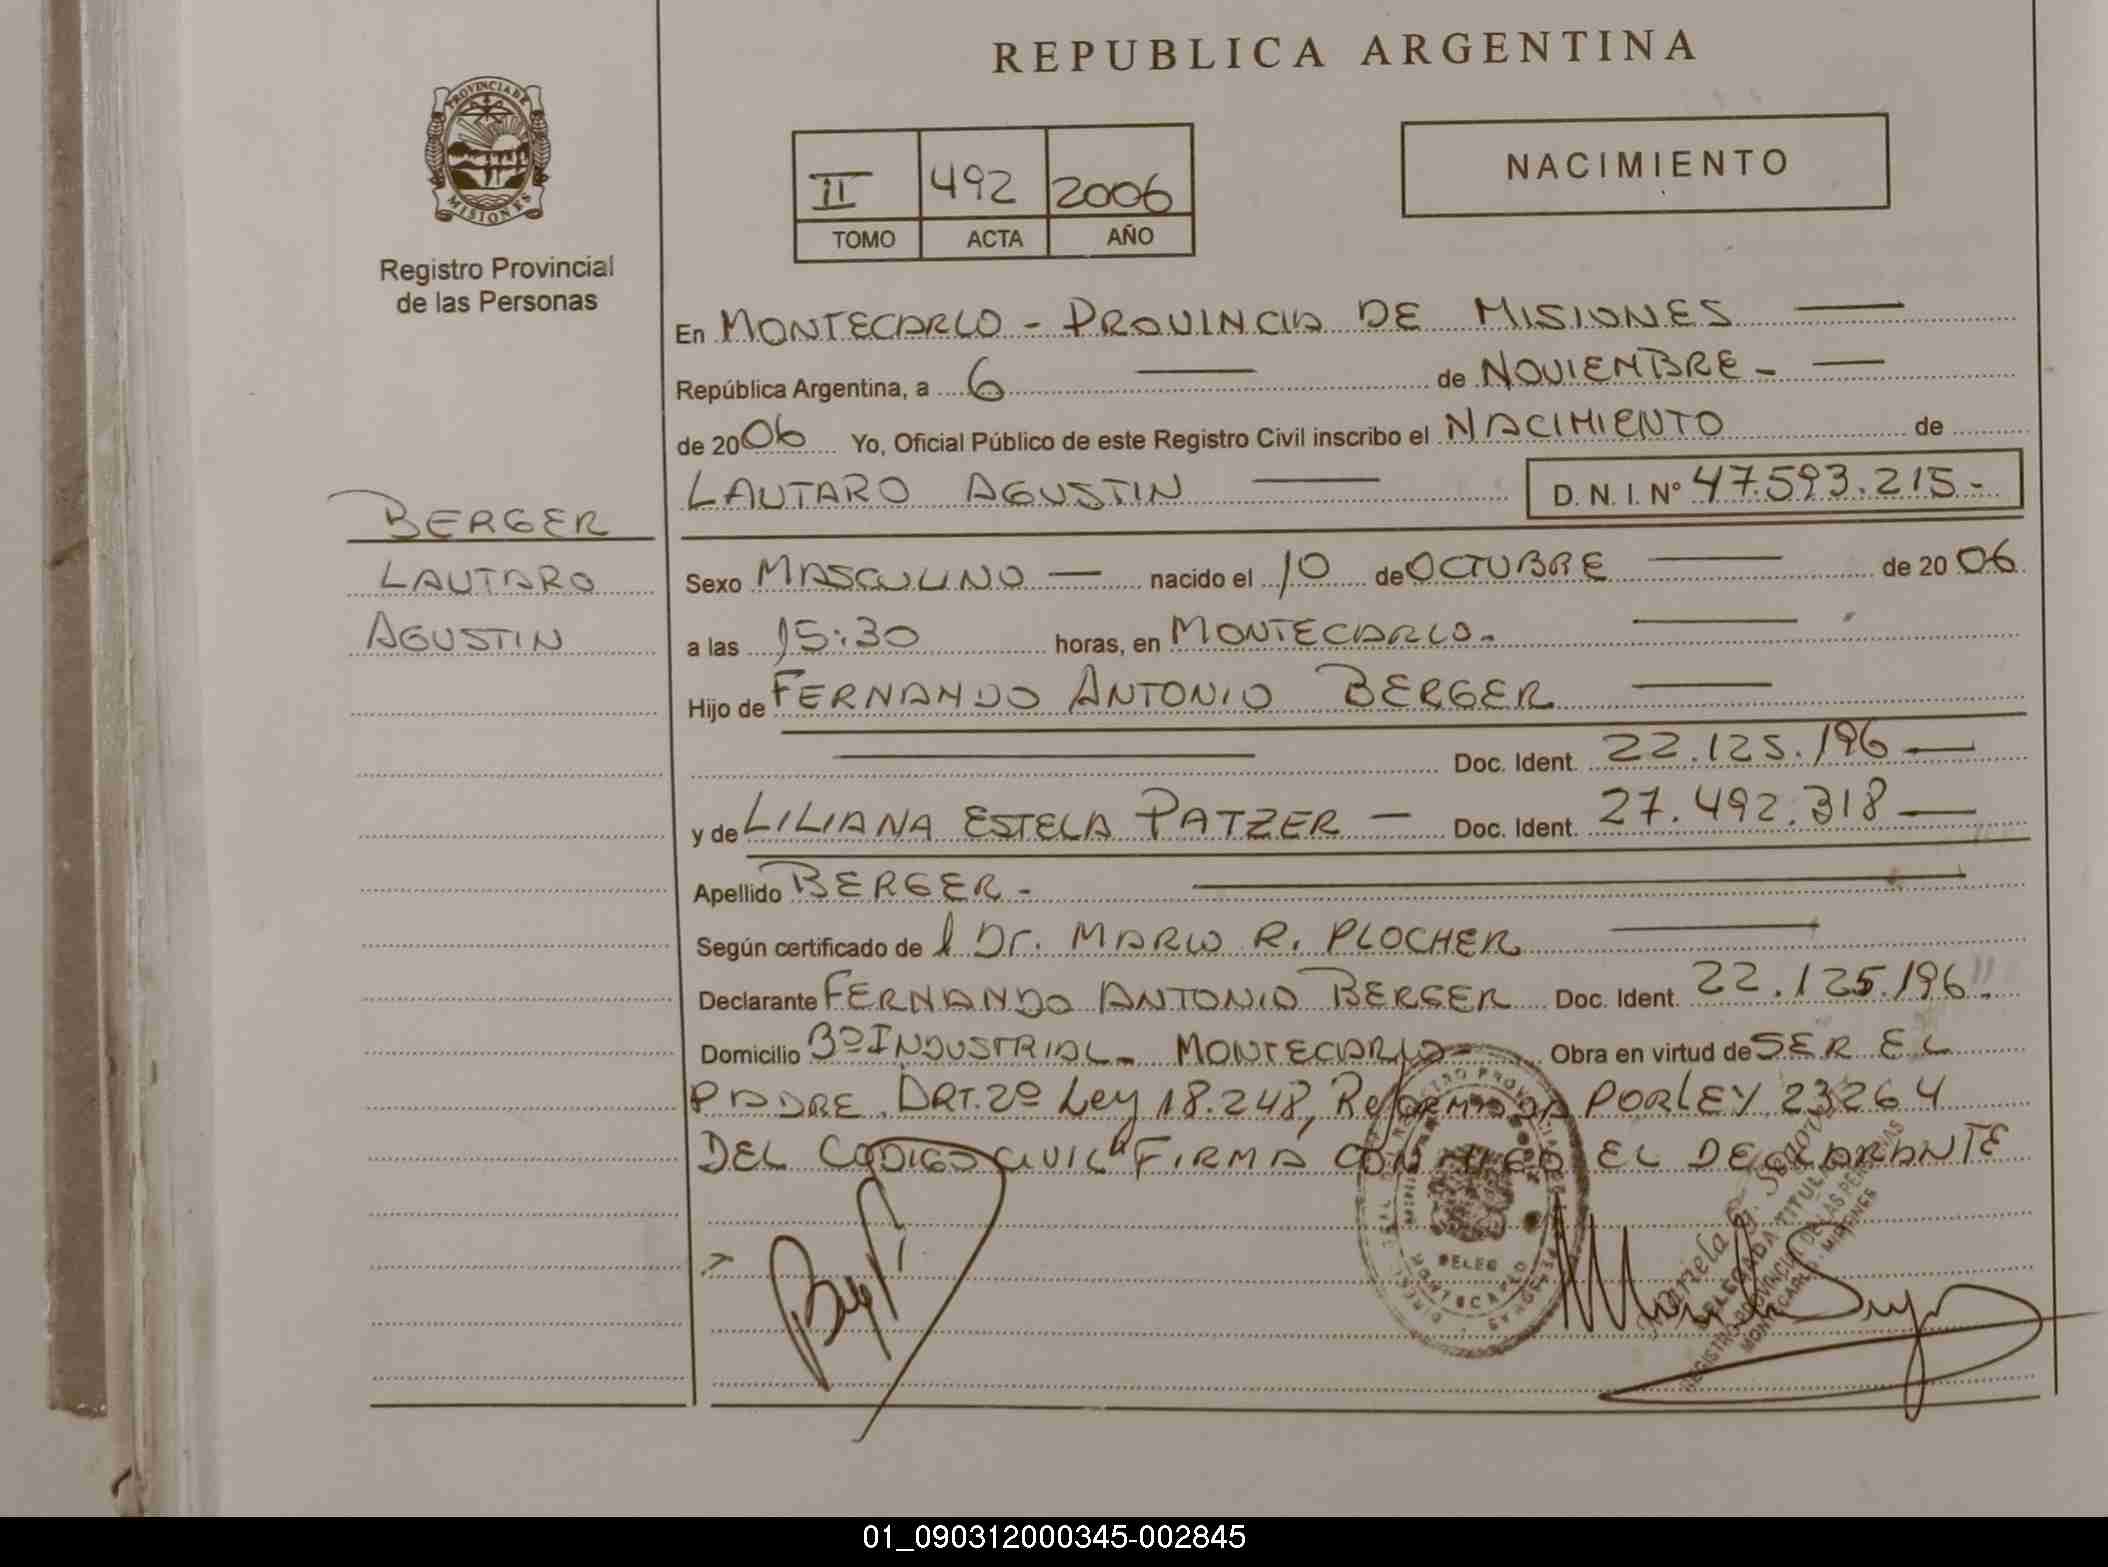 REPUBLICA ARGENTINA
PROVINCIA DE
MISIONES
Registro Provincial
de las Personas
II 492 2006
TOMO ACTA AÑO
NACIMIENTO
En MONTECARLO - PROVINCIA DE MISIONES
República Argentina, a 6 de NOVIEMBRE -
de 2006 Yo, Oficial Público de este Registro Civil inscribo el NACIMIENTO de
LAUTARO AGUSTIN D. N. I. Nº 47.593.215-
BERGER
LAUTARO
AGUSTIN
Sexo MASCULINO — nacido el 10 de OCTUBRE de 2006
a las 15:30 horas, en MONTECARLO-
Hijo de FERNANDO ANTONIO BERGER
Doc. Ident. 22.125.196 —
y de LILIANA ESTELA PATZER — Doc. Ident. 27.492.318 —
Apellido BERGER -
Según certificado de l Dr. MARIO R. PLOCHER
Declarante FERNANDO ANTONIO BERGER Doc. Ident. 22.125.196".
Domicilio Bº INDUSTRIAL - MONTECARLO - Obra en virtud de SER EL
PADRE. ART. 2º Ley 18.248, Reformada POR LEY 23264
DEL CODIGO CIVIL" FIRMA CONMIGO EL DECLARANTE
DELEG
MONTECARLO
Marcela
DELEGADA TITULAR
REGISTRO PROVINCIAL DE LAS PERSONAS
MONTECARLO - MISIONES
01_090312000345-002845